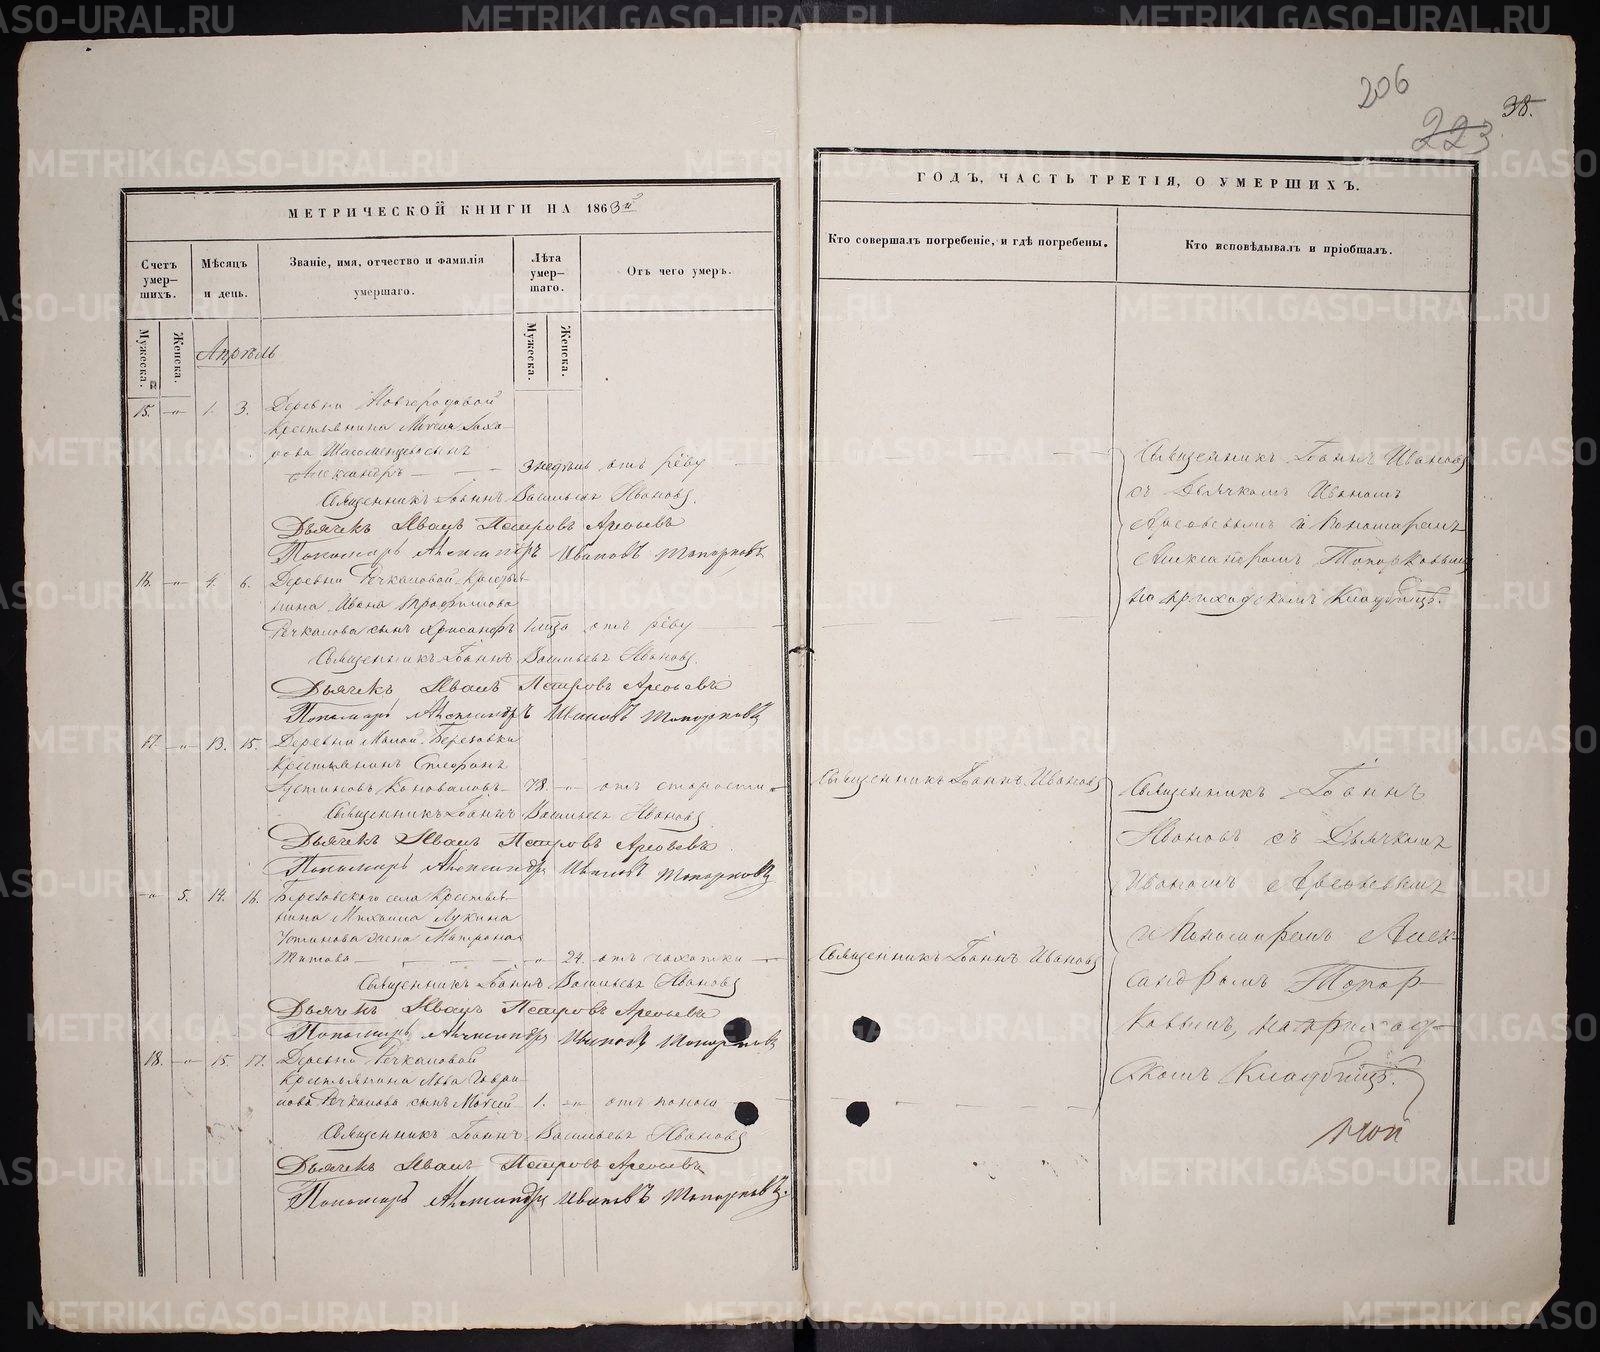 206
223
38.
МЕТРИЧЕСКОЙ КНИГИ НА 1863й
ГОДЪ, ЧАСТЬ ТРЕТІЯ, О УМЕРШИХЪ.
Счетъ умер-шихъ.
Мѣсяцъ и день.
Званіе, имя, отчество и фамилія умершаго.
Лѣта умер-шаго.
Отъ чего умеръ.
Кто совершалъ погребеніе, и гдѣ погребены.
Кто исповѣдывалъ и пріобщалъ.
Мужеска.
Женска.
Мужеска.
Женска.
Апрѣль
15. -„- 1. 3. Деревни
Крестьянина Моисея Заха-
рова сынъ
Александръ 3 недѣль отъ рёву
Священникъ Іоаннъ Васильевъ Ивановъ.
Дьячекъ Иванъ Петровъ Арефьевъ
Пономарь Александръ Ивановъ Топорковъ
16. -„- 4. 6. Деревни Речкаловой Крестья-
нина Ивана Трофимова
Речкалова сынъ Хрисанфъ 1 мѣсяца отъ рёву
Священникъ Іоаннъ Васильевъ Ивановъ.
Дьячекъ Иванъ Петровъ Арефьевъ
Пономарь Александръ Ивановъ Топорковъ
17. -„- 13. 15. Деревни Малой Березовки
Крестьянинъ Стефанъ
Устиновъ Коноваловъ 78. -„- отъ старости
Священникъ Іоаннъ Васильевъ Ивановъ
Дьячекъ Иванъ Петровъ Арефьевъ.
Пономарь Александръ Ивановъ Топорковъ
-„- 5. 14. 16. Березовскаго села Крестья-
нина Михаила Лукина
Устинова жена Матрона
Титова -„- 24. отъ чахотки
Священникъ Іоаннъ Васильевъ Ивановъ
Дьячекъ Иванъ Петровъ Арефьевъ
Пономарь Александръ Ивановъ Топорковъ
18. -„- 15. 17. Деревни Речкаловой
Крестьянина Льва Гаври-
лова Речкалова сынъ Моисей 1. -„- отъ поноса
Священникъ Іоаннъ Васильевъ Ивановъ
Дьячекъ Иванъ Петровъ Арефьевъ
Пономарь Александръ Ивановъ Топорковъ.
Священникъ Іоаннъ Ивановъ
Священникъ Іоаннъ Ивановъ
Священникъ Іоаннъ Ивановъ
съ Дьячкомъ Иваномъ
Арефьевымъ и Пономаремъ
Александромъ Топорковымъ
на приходскомъ Кладбищѣ.
Священникъ Іоаннъ
Ивановъ съ Дьячкомъ
Иваномъ Арефьевымъ
и Пономаремъ Алек-
сандромъ Топор-
ковымъ, на приход-
скомъ Кладбищѣ.
METRIKI.GASO-URAL.RU